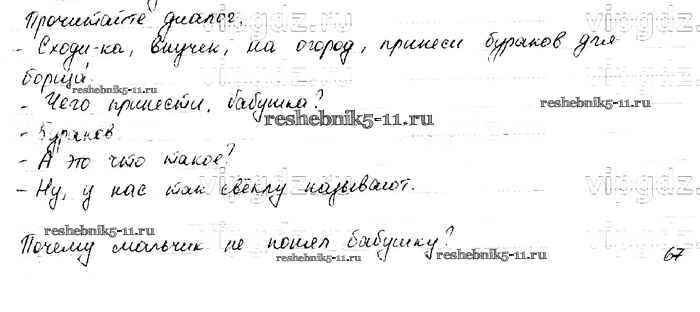 Прочитайте диалог.
- Сходи-ка, внучек, на огород, принеси бураков для
борща.
- Чего принести, бабушка?
- Бураков
- А это что такое?
- Ну, у нас так свёклу называют.
Почему мальчик не понял бабушку?
67
vipgdz.
reshebnik5-11.ru
reshebnik5-11.ru
reshebnik5-11.ru
reshebnik5-11.ru
reshebnik5-11.ru
reshebnik5-11.ru